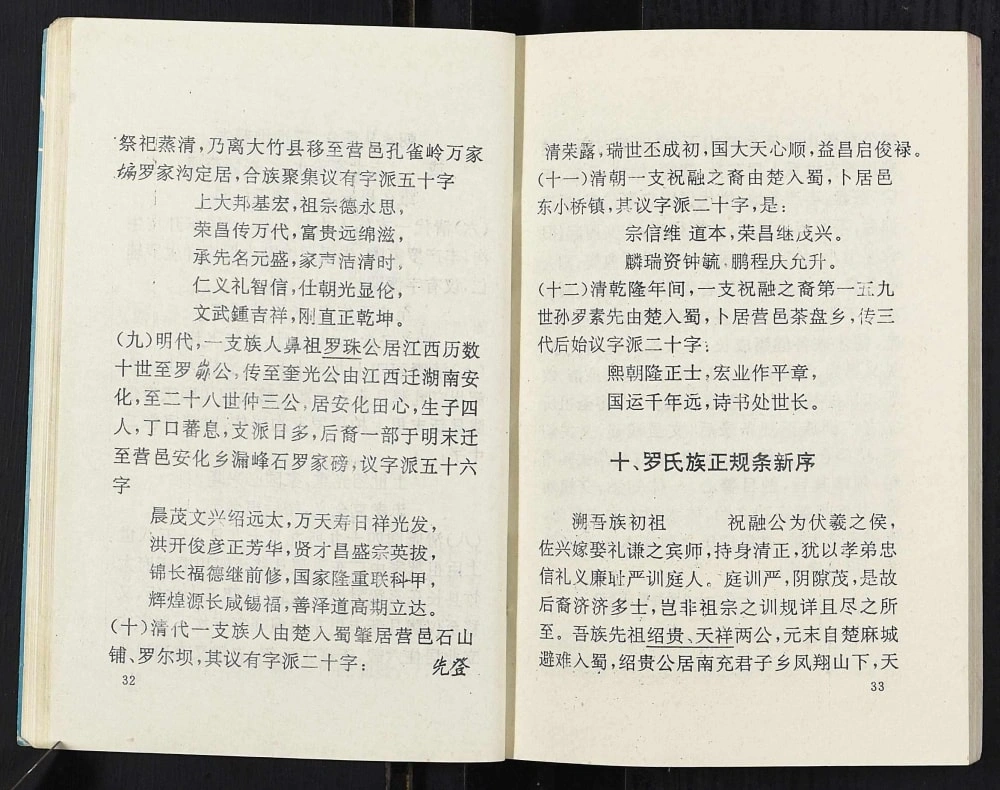 祭祀蒸清，乃离大竹县移至营邑孔雀岭万家
罗家沟定居，合族聚集议有字派五十字
上大邦基宏，祖宗德永思，
荣昌传万代，富贵远绵滋，
承先名元盛，家声洁清时，
仁义礼智信，仕朝光显伦，
文武鍾吉祥，刚直正乾坤。
(九)明代，一支族人鼻祖罗珠公居江西历数
十世至罗公，传至奎光公由江西迁湖南安
化，至二十八世仲三公，居安化田心，生子四
人，丁口蕃息，支派日多，后裔一部于明末迁
至营邑安化乡漏峰石罗家磅，议字派五十六
字
晨茂文兴绍远太，万天寿日祥光发，
洪开俊彦正芳华，贤才昌盛宗英拔，
锦长福德继前修，国家隆重联科甲，
辉煌源长咸锡福，善泽道高期立达。
(十)清代一支族人由楚入蜀肇居营邑石山
铺、罗尔坝，其议有字派二十字：先登
32
清荣露，瑞世丕成初，国大天心顺，益昌启俊禄。
(十一)清朝一支祝融之裔由楚入蜀，卜居邑
东小桥镇，其议字派二十字，是：
宗信维 道本，荣昌继茂兴。
麟瑞资钟毓，鹏程庆允升。
(十二)清乾隆年间，一支祝融之裔第一五九
世孙罗素先由楚入蜀，卜居营邑茶盘乡，传三
代后始议字派二十字：
熙朝隆正士，宏业作平章，
国运千年远，诗书处世长。
十、罗氏族正规条新序
溯吾族初祖 祝融公为伏羲之侯，
佐兴嫁娶礼谦之宾师，持身清正，犹以孝弟忠
信礼义廉耻严训庭人。庭训严，阴隙茂，是故
后裔济济多士，岂非祖宗之训规详且尽之所
至。吾族先祖绍贵、天祥两公，元末自楚麻城
避难入蜀，绍贵公居南充君子乡凤翔山下，天
33